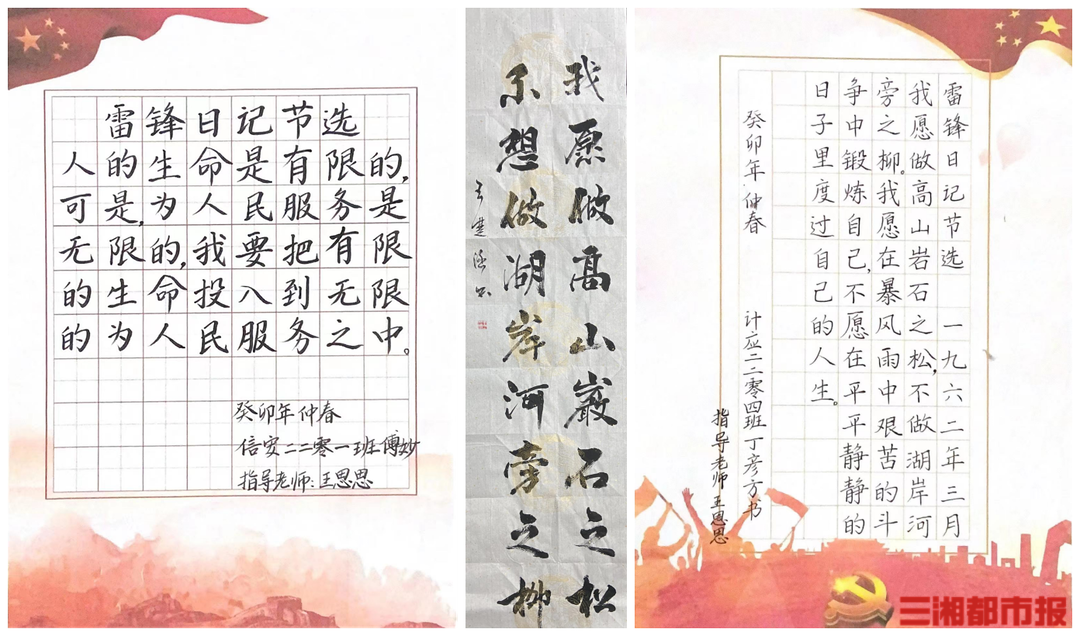 雷锋日记节选
人的生命是有限的,
可是,为人民服务是
无限的,我要把有限
的生命投入到无限
的为人民服务之中。
癸卯年仲春
信安二二零一班 傅妙
指导老师:王思思
我愿做高山岩石之松
不想做湖岸河旁之柳
雷锋日记节选 一九六二年三月
我愿做高山岩石之松,不做湖岸河
旁之柳。我愿在暴风雨中艰苦的斗
争中锻炼自己,不愿在平平静静的
日子里度过自己的人生。
癸卯年仲春 计应二二零四班丁彦方书
指导老师王思思
三湘都市报